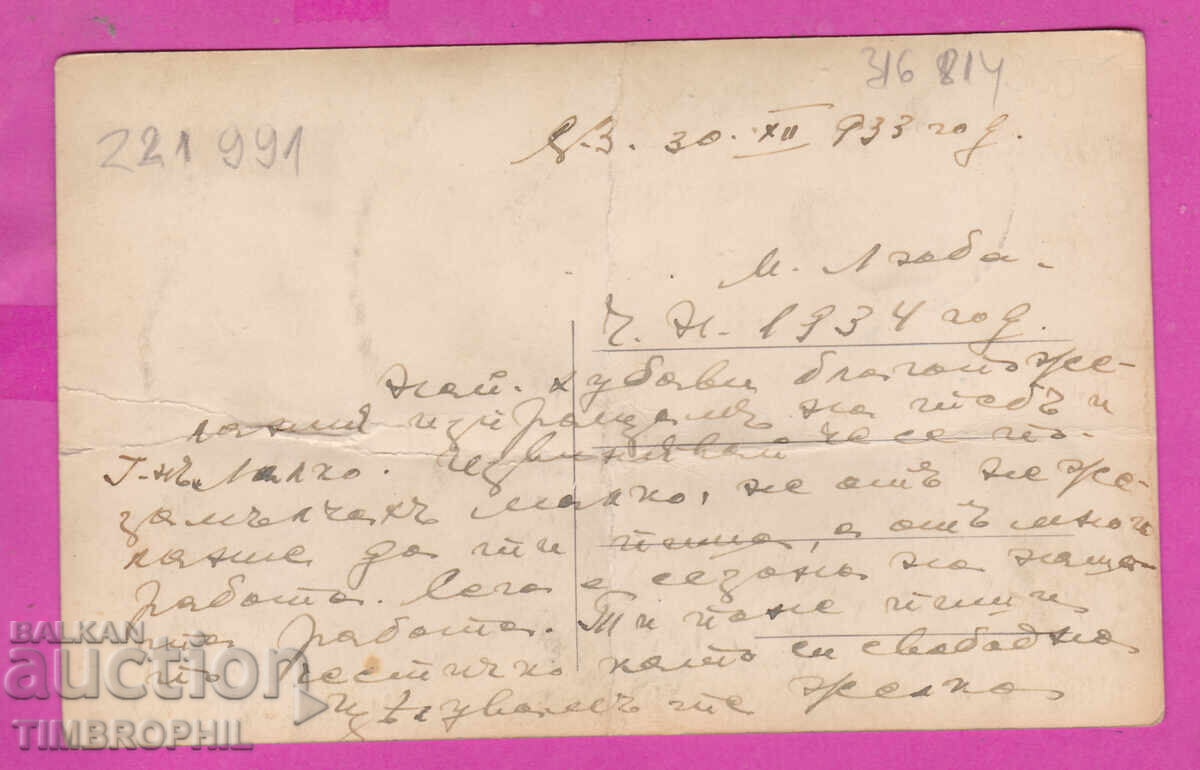 316 814
221 991
30. XII 933 год.
М. Люба.
Ч. Н. 1934 год.
Най-хубави благопоже-
лания изпращамъ на тебъ и
Г-нъ Милко. Извинявай че се по-
замълчахъ малко, не отъ неже-
лание да ти пиша, а отъ много
работа. Сега е сезона на наша-
та работа. Ти поне пиши
по честичко като си свободна
Цѣлувамъ те Желка
BALKAN
auction
TIMBROPHIL